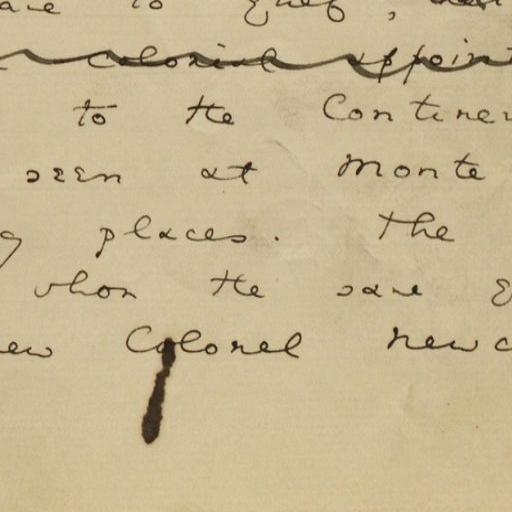 to grief,
colonial appoint
to the Continen
seen at Monte
places. The
whom the same
Colonel Newc